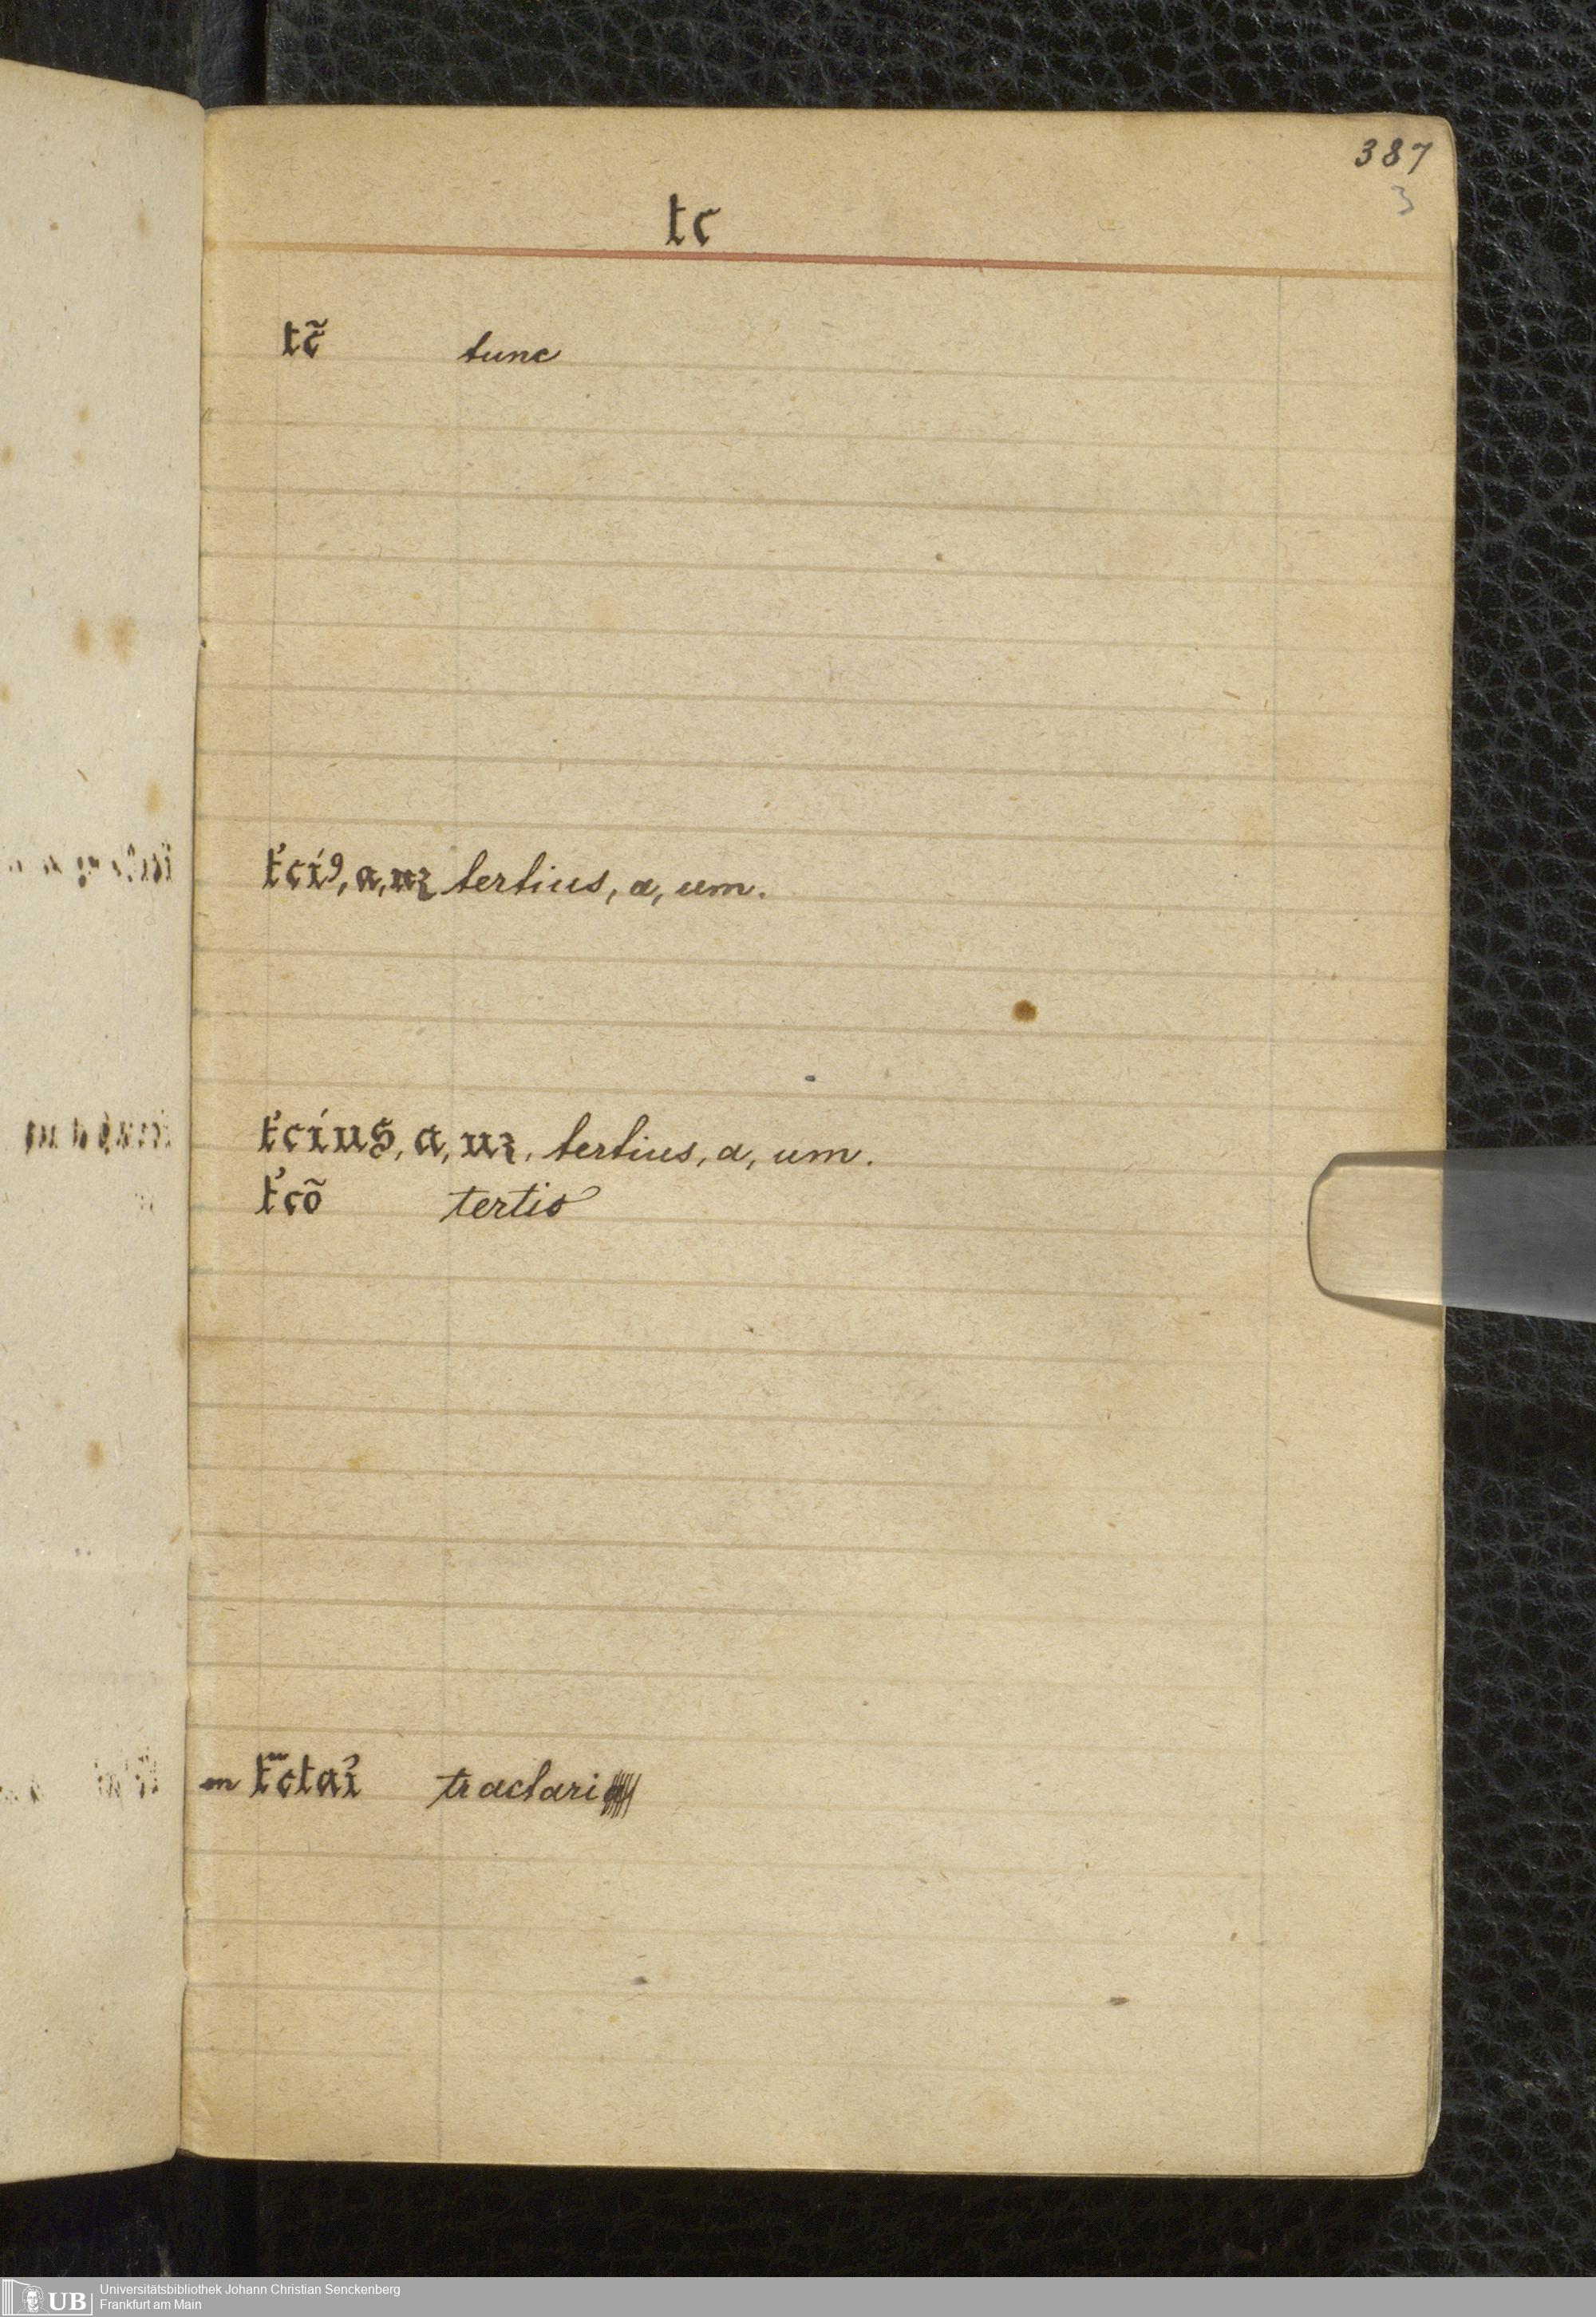 387
3
tc
tc̃ tunc
t̓cıꝰ, a, uꝫ tertius, a, um.
t̓cíus, a, uꝫ, tertius, a, um.
t̓cõ tertio
m t̄ctaı᷑ tractari
UB Universitätsbibliothek Johann Christian Senckenberg
Frankfurt am Main